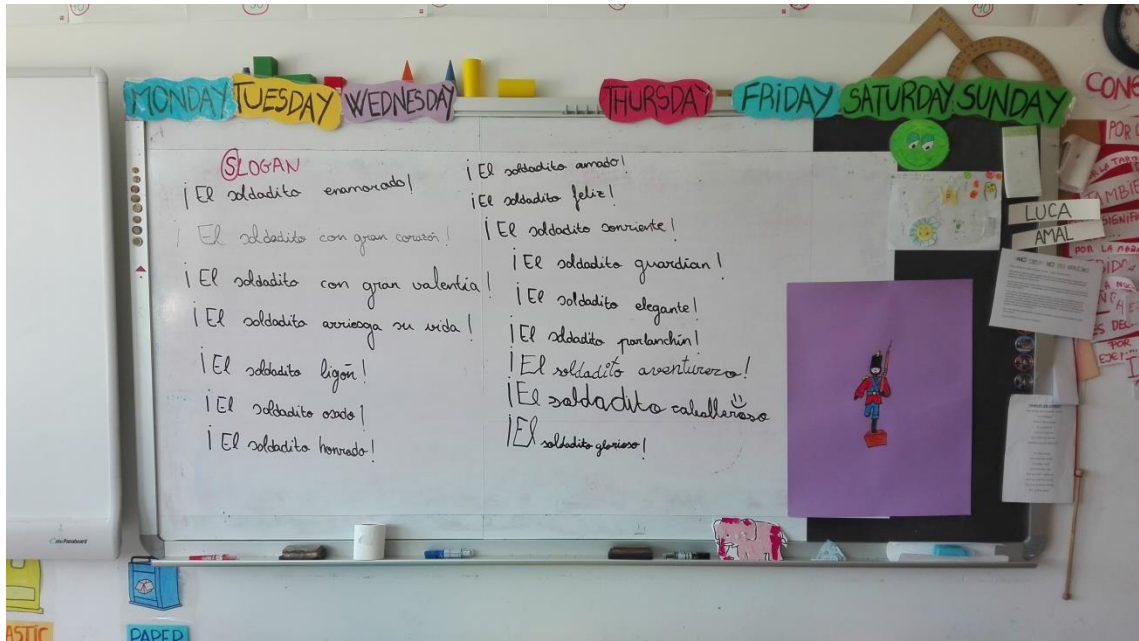 MONDAY
TUESDAY
WEDNESDAY
THURSDAY
FRIDAY
SATURDAY
SUNDAY
SLOGAN
¡El soldadito enamorado!
¡El soldadito con gran corazón!
¡El soldadito con gran valentía!
¡El soldadito arriesga su vida!
¡El soldadito ligón!
¡El soldadito osado!
¡El soldadito honrado!
¡El soldadito amado!
¡El soldadito feliz!
¡El soldadito sonriente!
¡El soldadito guardían!
¡El soldadito elegante!
¡El soldadito parlanchín!
¡El soldadito aventurero!
¡El soldadito caballeroso
¡El soldadito glorioso!
LUCA
AMAL
CONS
POR
POR LA
Panaboard
ASTIC
PAPER